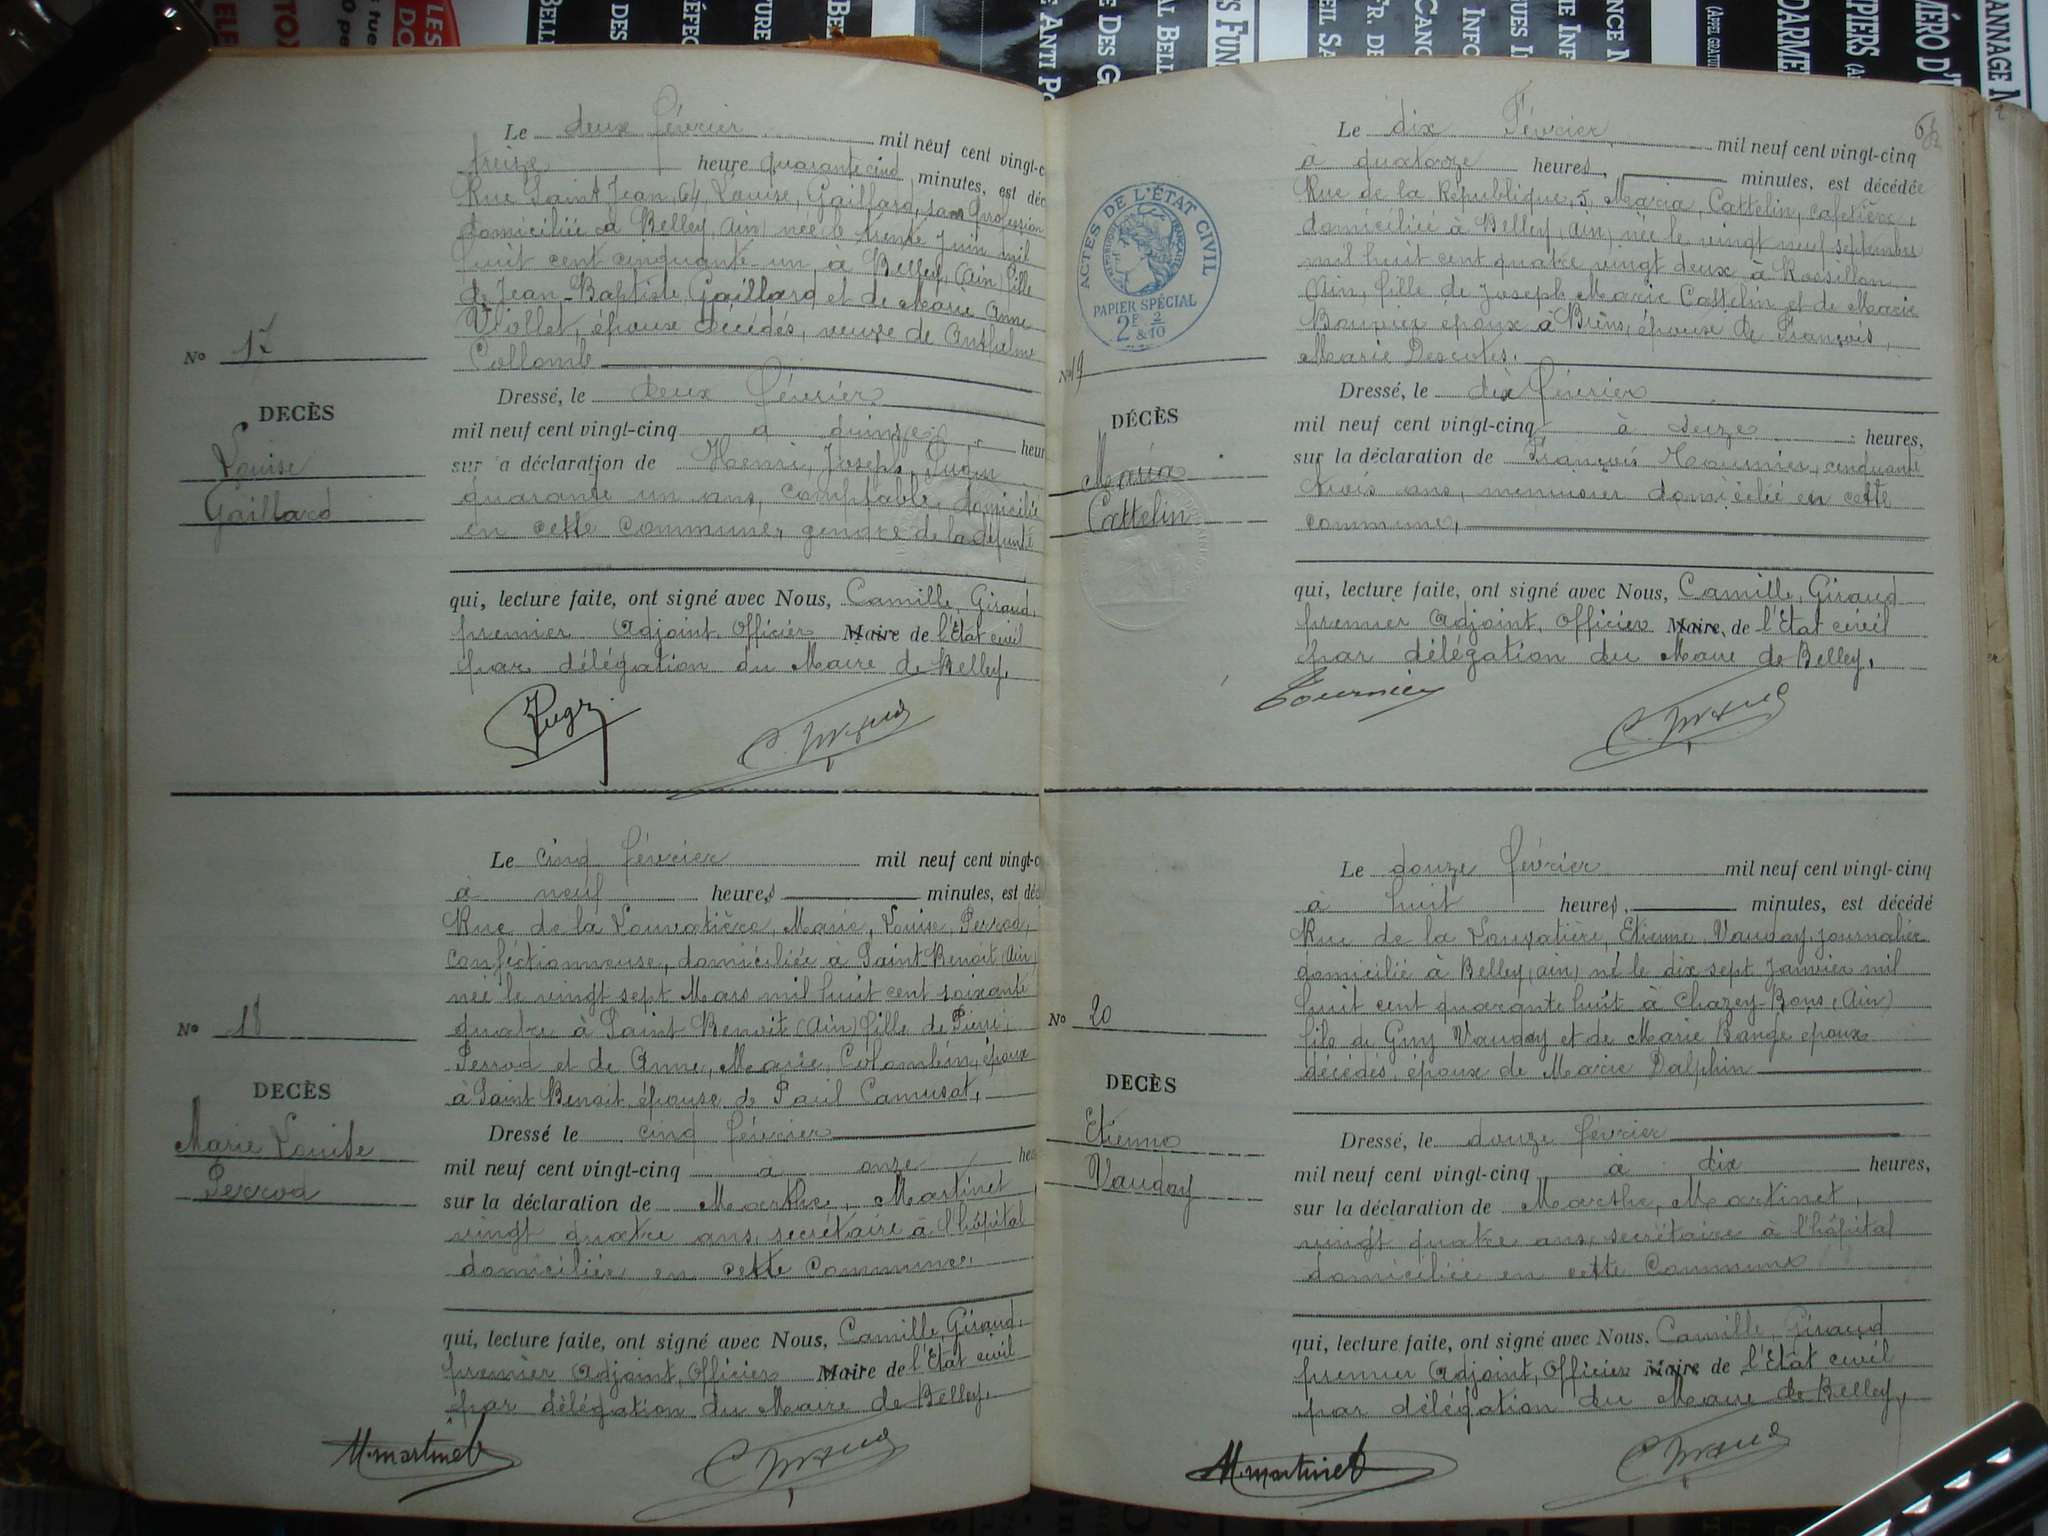 Le deux février mil neuf cent vingt-c
treize heure quarante cinq minutes, est déc
Rue Saint Jean 64, Louise, Gaillard, sans profession
domiciliée à Belley (Ain) née le trente Juin mil
huit cent cinquante un à Belley (Ain) fille
de Jean-Baptiste Gaillard et de Marie Anne
Viollet, époux décédés, veuve de Anthelme
Collomb
No 17
DECÈS
Louise
Gaillard
Dressé, le deux février
mil neuf cent vingt-cinq à quinze heur
sur la déclaration de Henri, Joseph,
quarante un ans, comptable, domicilié
en cette commune, gendre de la défunte
qui, lecture faite, ont signé avec Nous, Camille, Giraud,
premier Adjoint, Officier Maire de l'Etat civil
par délégation du Maire de Belley.
C. Giraud
Le cinq février mil neuf cent vingt-c
à neuf heures minutes, est déc
Rue de la Louvatière, Marie, Louise, Perrod,
confectionneuse, domiciliée à Saint-Benoit (Ain)
née le vingt sept Mars mil huit cent soixante
quatre à Saint Benoit (Ain) fille de Pierre,
Perrod et de Anne, Marie, Colombin, époux
à Saint Benoit, épouse de Paul Camusat,
No 18
DECÈS
Marie Louise
Perrod
Dressé le cinq février
mil neuf cent vingt-cinq à onze heu
sur la déclaration de Marthe, Martinet
vingt quatre ans, secrétaire à l'hôpital
domiciliée en cette commune,
qui, lecture faite, ont signé avec Nous, Camille, Giraud,
premier Adjoint, Officier Maire de l'Etat civil
par délégation du Maire de Belley.
M. Martinet
C. Giraud
Le dix Février mil neuf cent vingt-cinq
à quatorze heures, minutes, est décédée
Rue de la République, 5, Maria, Cattelin, cafetière,
domiciliée à Belley (Ain) née le vingt neuf septembre
mil huit cent quatre vingt deux à Rossillon,
Ain, fille de Joseph Marie Cattelin et de Marie
Bouvier époux à Brens, épouse de François,
Marie Descotes.
ACTES DE L'ÉTAT CIVIL
RÉPUBLIQUE FRANÇAISE
PAPIER SPÉCIAL
2F & 2/10
No 19
DÉCÈS
Maria
Cattelin
Dressé, le dix février
mil neuf cent vingt-cinq à seize heures,
sur la déclaration de François Tournier, cinquante
trois ans, menuisier domicilié en cette
commune,
qui, lecture faite, ont signé avec Nous, Camille, Giraud
premier Adjoint, Officier Maire, de l'Etat civil
par délégation du Maire de Belley,
Tournier
C. Giraud
Le douze février mil neuf cent vingt-cinq
à huit heures, minutes, est décédé
Rue de la Louvatière, Etienne, Vauday, journalier
domicilié à Belley (Ain) né le dix sept Janvier mil
huit cent quarante huit à Chazey-Bons, (Ain)
fils de Guy Vauday et de Marie Bange époux
décédés, époux de Marie Dalphin
No 20
DECÈS
Etienne
Vauday
Dressé, le douze février
mil neuf cent vingt-cinq à dix heures,
sur la déclaration de Marthe, Martinet,
vingt quatre ans, secrétaire à l'hôpital
domiciliée en cette commune
qui, lecture faite, ont signé avec Nous, Camille, Giraud
premier Adjoint, Officier Maire de l'Etat civil
par délégation du Maire de Belley,
M. Martinet
C. Giraud